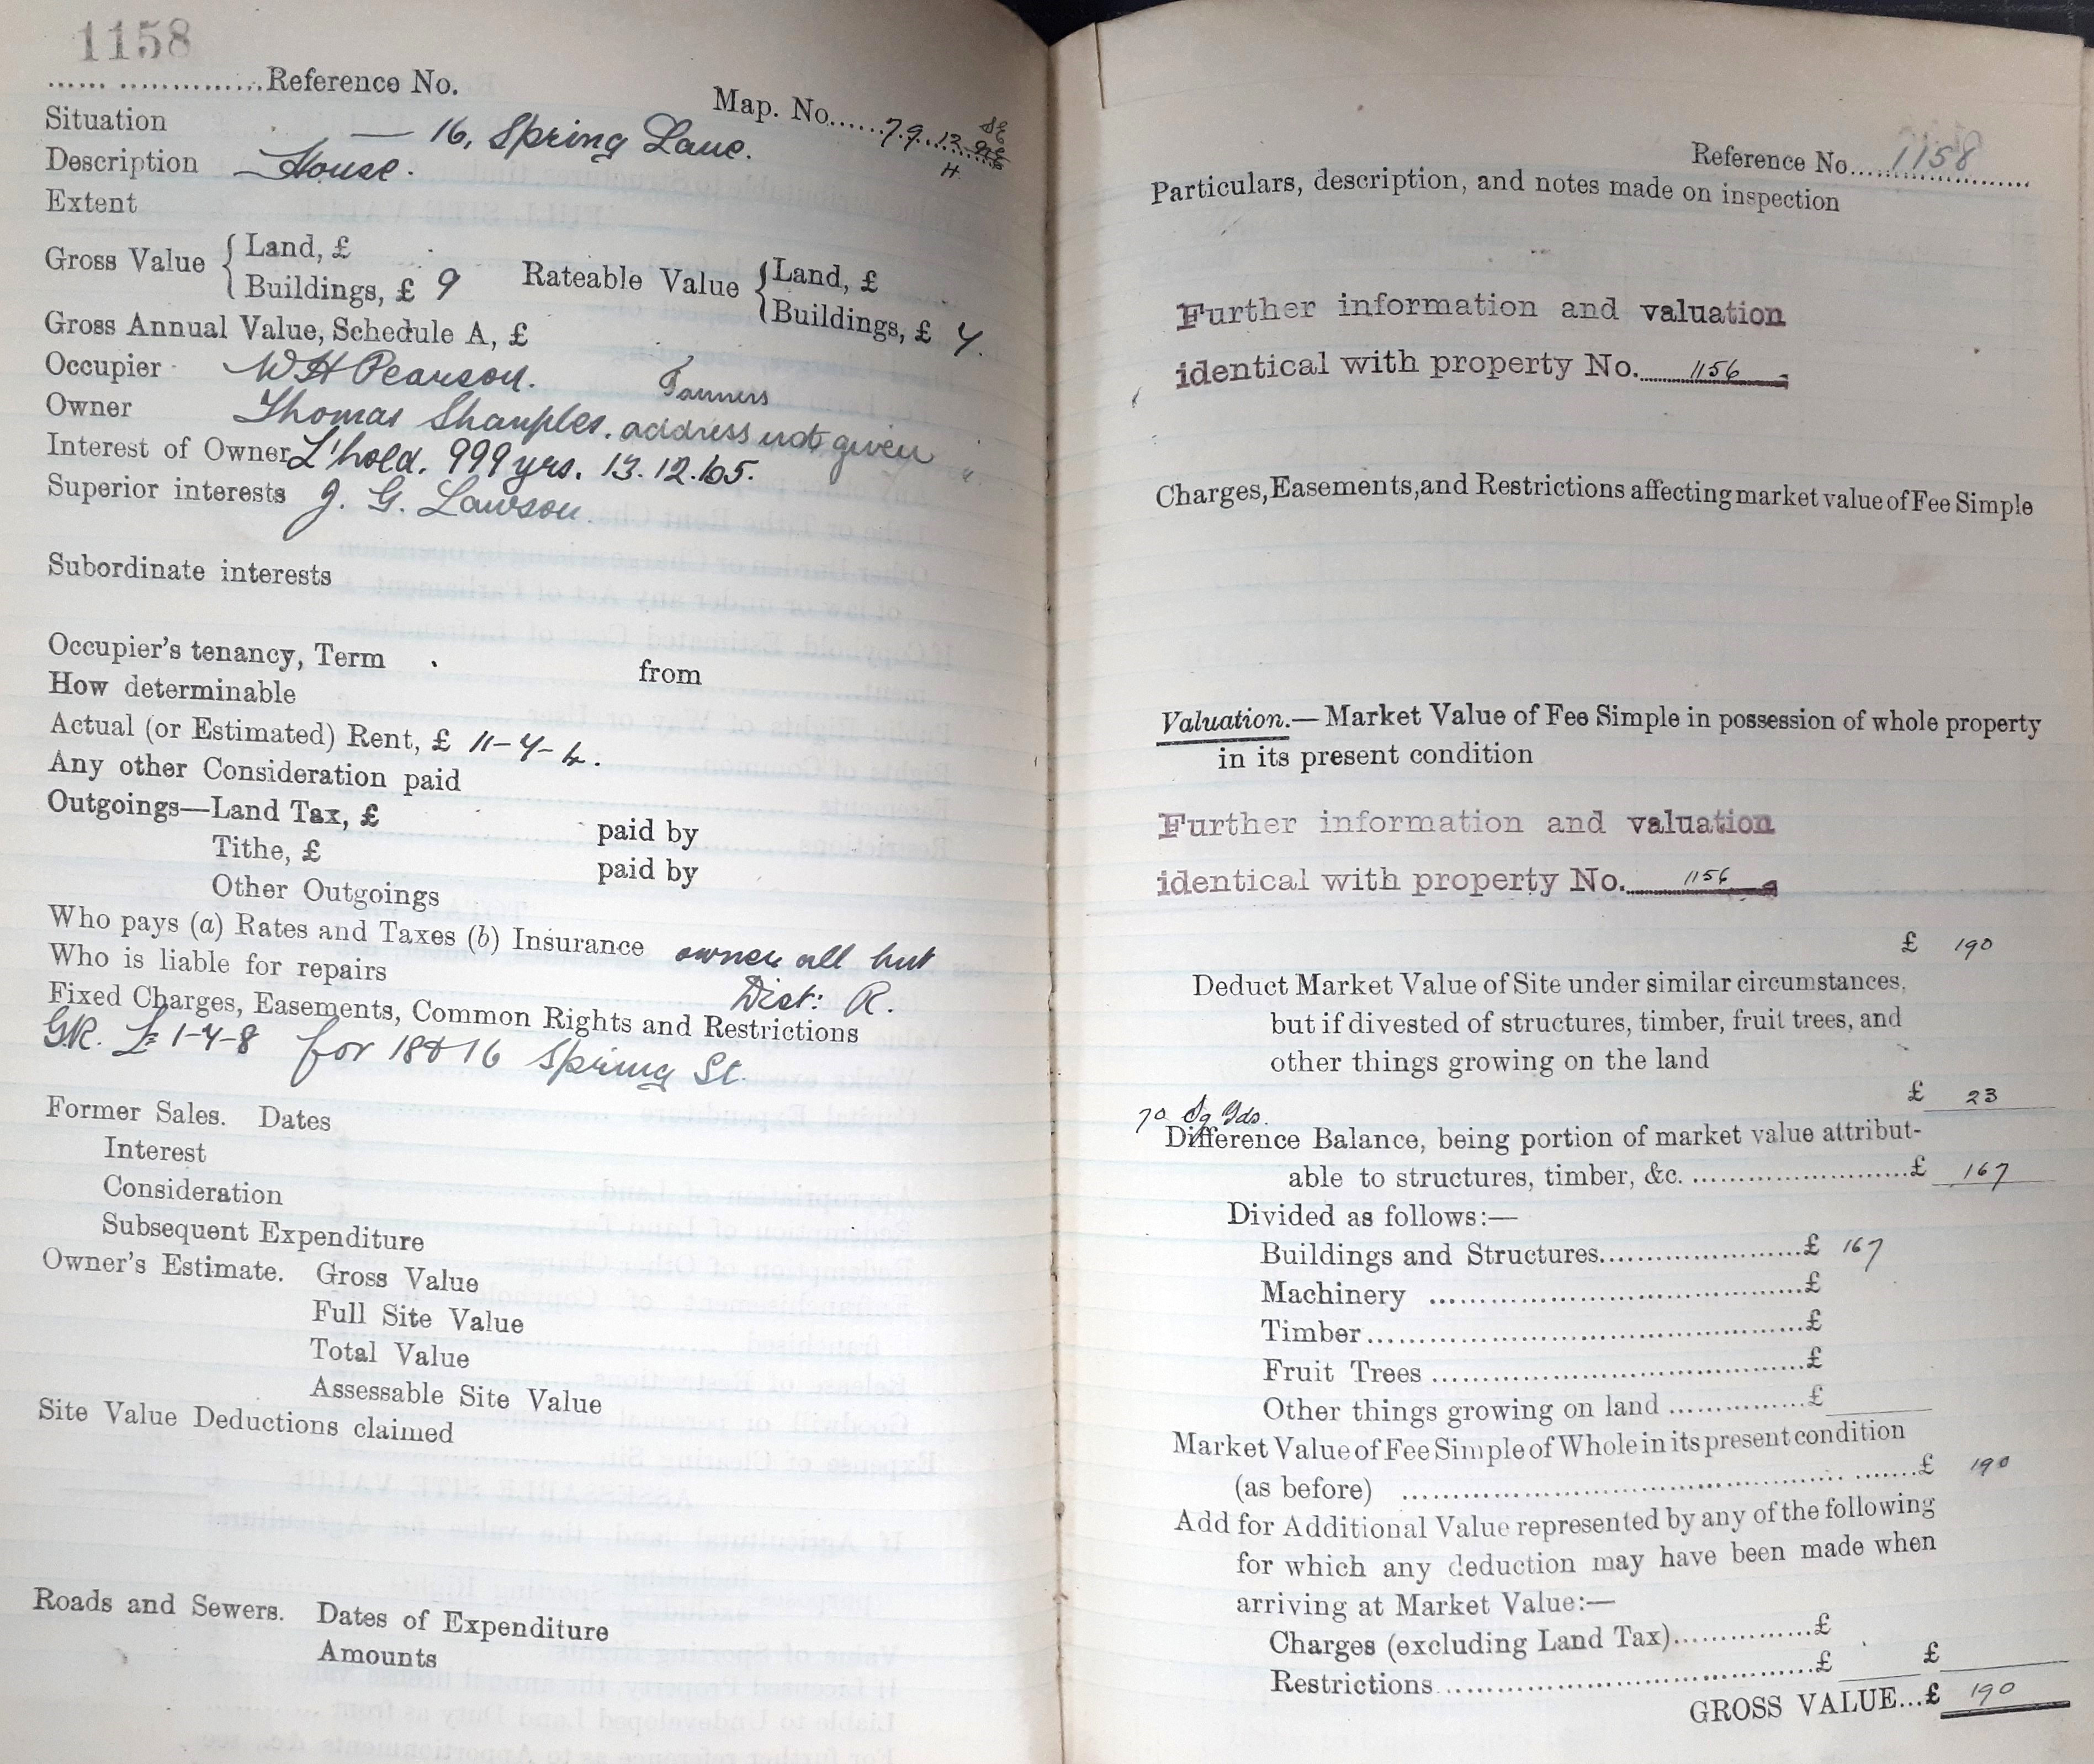 1158
...... ..............Reference No.
Map. No......79.13 SE
H
Situation — 16, Spring Lane.
Description House.
Extent
Gross Value { Land, £
Buildings, £ 9
Rateable Value { Land, £
Buildings, £ 7.
Gross Annual Value, Schedule A, £
Occupier W H Pearson.
Owner Thomas Sharples. address not given
Interest of Owner L'hold. 999 yrs. 13.12.65.
Superior interests J. G. Lawson.
Subordinate interests
Occupier's tenancy, Term from
How determinable
Actual (or Estimated) Rent, £ 11-7-4.
Any other Consideration paid
Outgoings—Land Tax, £ paid by
Tithe, £ paid by
Other Outgoings
Who pays (a) Rates and Taxes (b) Insurance owner all but
Who is liable for repairs Dist: R.
Fixed Charges, Easements, Common Rights and Restrictions
GR. £1-7-8 for 18 & 16 Spring St.
Former Sales. Dates
Interest
Consideration
Subsequent Expenditure
Owner's Estimate. Gross Value
Full Site Value
Total Value
Assessable Site Value
Site Value Deductions claimed
Roads and Sewers. Dates of Expenditure
Amounts
Reference No....1158
Particulars, description, and notes made on inspection
Further information and valuation
identical with property No. 1156
Charges, Easements, and Restrictions affecting market value of Fee Simple
Valuation.—Market Value of Fee Simple in possession of whole property
in its present condition
Further information and valuation
identical with property No. 1156
£ 190
Deduct Market Value of Site under similar circumstances,
but if divested of structures, timber, fruit trees, and
other things growing on the land
£ 23
70 Sq Yds.
Difference Balance, being portion of market value attribut-
able to structures, timber, &c. ........................£ 167
Divided as follows:—
Buildings and Structures......................£ 167
Machinery ......................................£
Timber..........................................£
Fruit Trees ....................................£
Other things growing on land ...............£
Market Value of Fee Simple of Whole in its present condition
(as before) ..............................................£ 190
Add for Additional Value represented by any of the following
for which any deduction may have been made when
arriving at Market Value:—
Charges (excluding Land Tax)...............£
Restrictions....................................£ £
GROSS VALUE...£ 190